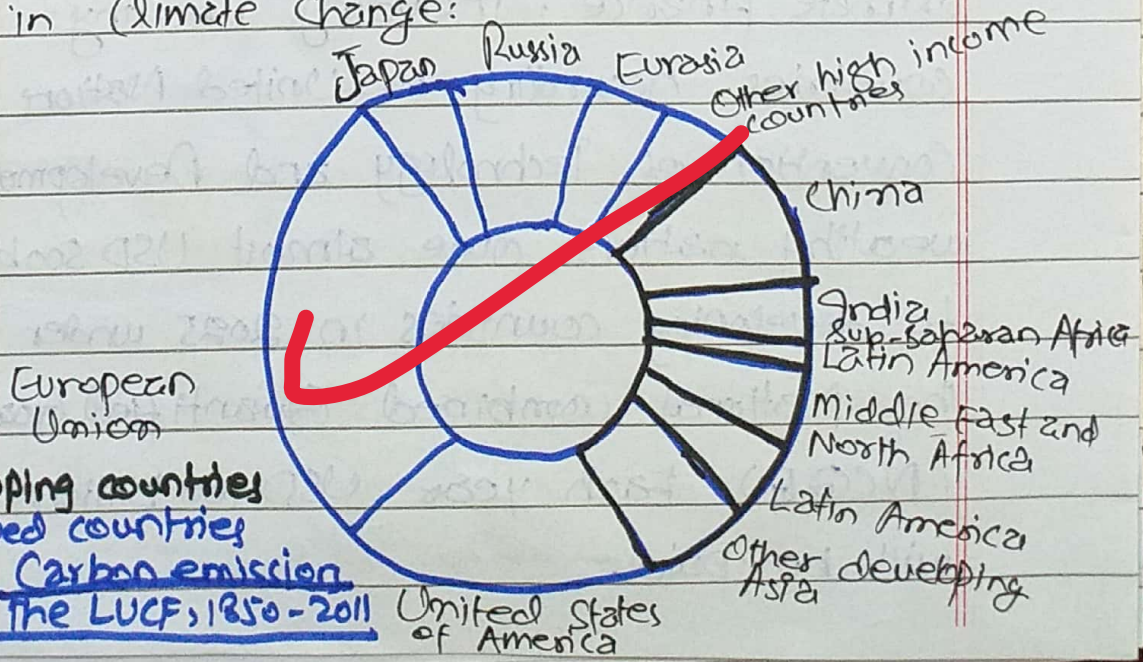 in Climate Change:
Japan
Russia
Eurasia
Other high income
countries
China
India
Sup-saharan Africa
Latin America
Middle East and
North Africa
Latin America
Other developing
Asia
United States
of America
European
Union
ping countries
ed countries
Carbon emission
the LUCF, 1850-2011